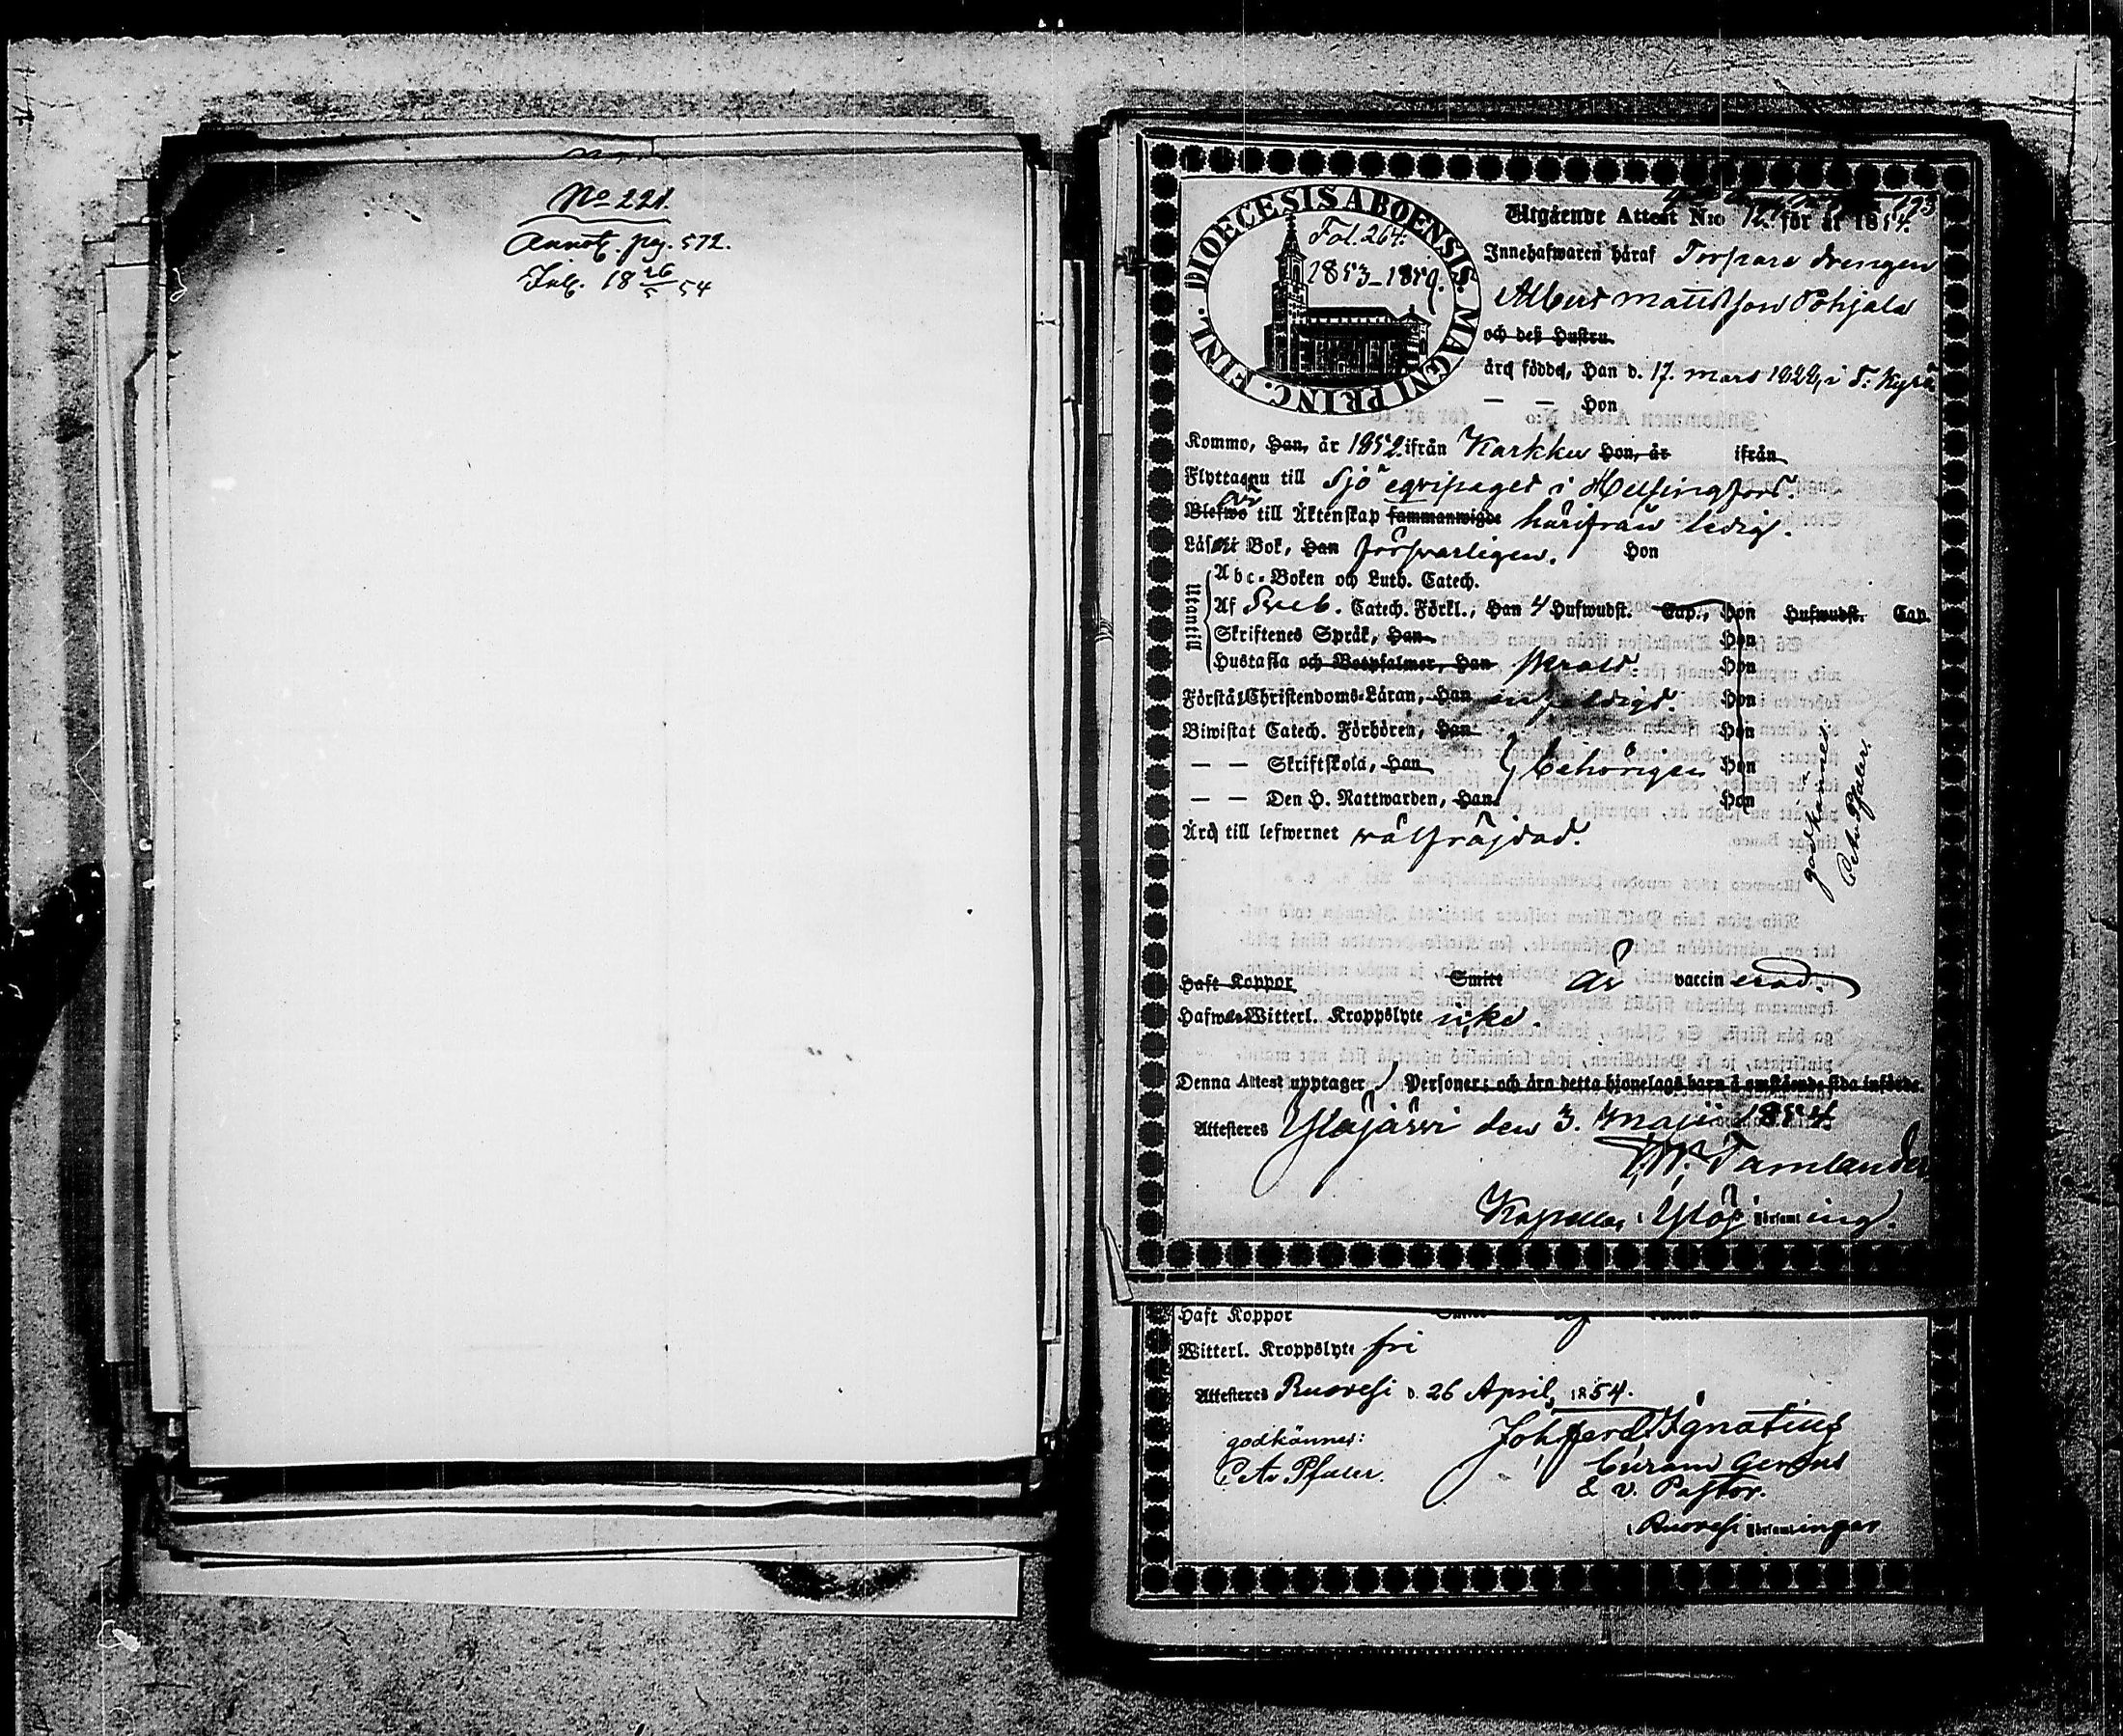 No 221.
Annot. pag. 572.
Inl. 18 26/5 54
DIOECESIS ABOENSIS. MAGNI PRINC. FINL.
Fol. 264.
1853-1859.
193
Utgående Attest N:o 12. för år 1854.
Innehafwaren häraf Torpare drengen
Albert Mattsson Pohjala
och deß Hustru
äro födde, Han d. 17. Mars 1829, i T: Kyrö
— — Hon
Kommo, Han, år 1852 ifrån Karkku Hon, år ifrån
Flytta nu till Sjö eqvipaget i Helsingfors.
Blefwo till Äktenskap sammanwigde härifrån ledig.
Läser i Bok, Han försvarligen. Hon
Utantill
Abc-Boken och Luth. Catech.
Af Sveb. Catech. Förkl., Han 4 Hufwudst. Cap., Hon Hufwudst. Cap.
Skriftenes Språk, Han Hon
Hustafla och Botpsalmer, Han Hon
Förstå Christendoms-Läran, Han enfaldigt. Hon
Biwistat Catech. Förhören, Han Hon
— — Skriftskola, Han behörigen Hon
— — Den H. Nattwarden, Han Hon
Äro till lefwernet välfräjdad.
godkännes:
Haft Koppor Smitt är vaccinerad.
Hafwa Witterl. Kroppslyte icke.
Denna Attest upptager 1 Personer; och äro detta hjonelags barn å omstående sida införde.
Attesteres Ylöjärvi den 3. Maji 1854.
Tamlander
Kapellan i Ylöj Församling.
Haft Koppor
Witterl. Kroppslyte fri
Attesteres Ruovesi d. 26 April 1854.
godkännes: Joh ferd. Ignatius
Curam Gerens
& v. Pastor.
i Ruovesi Församlingar